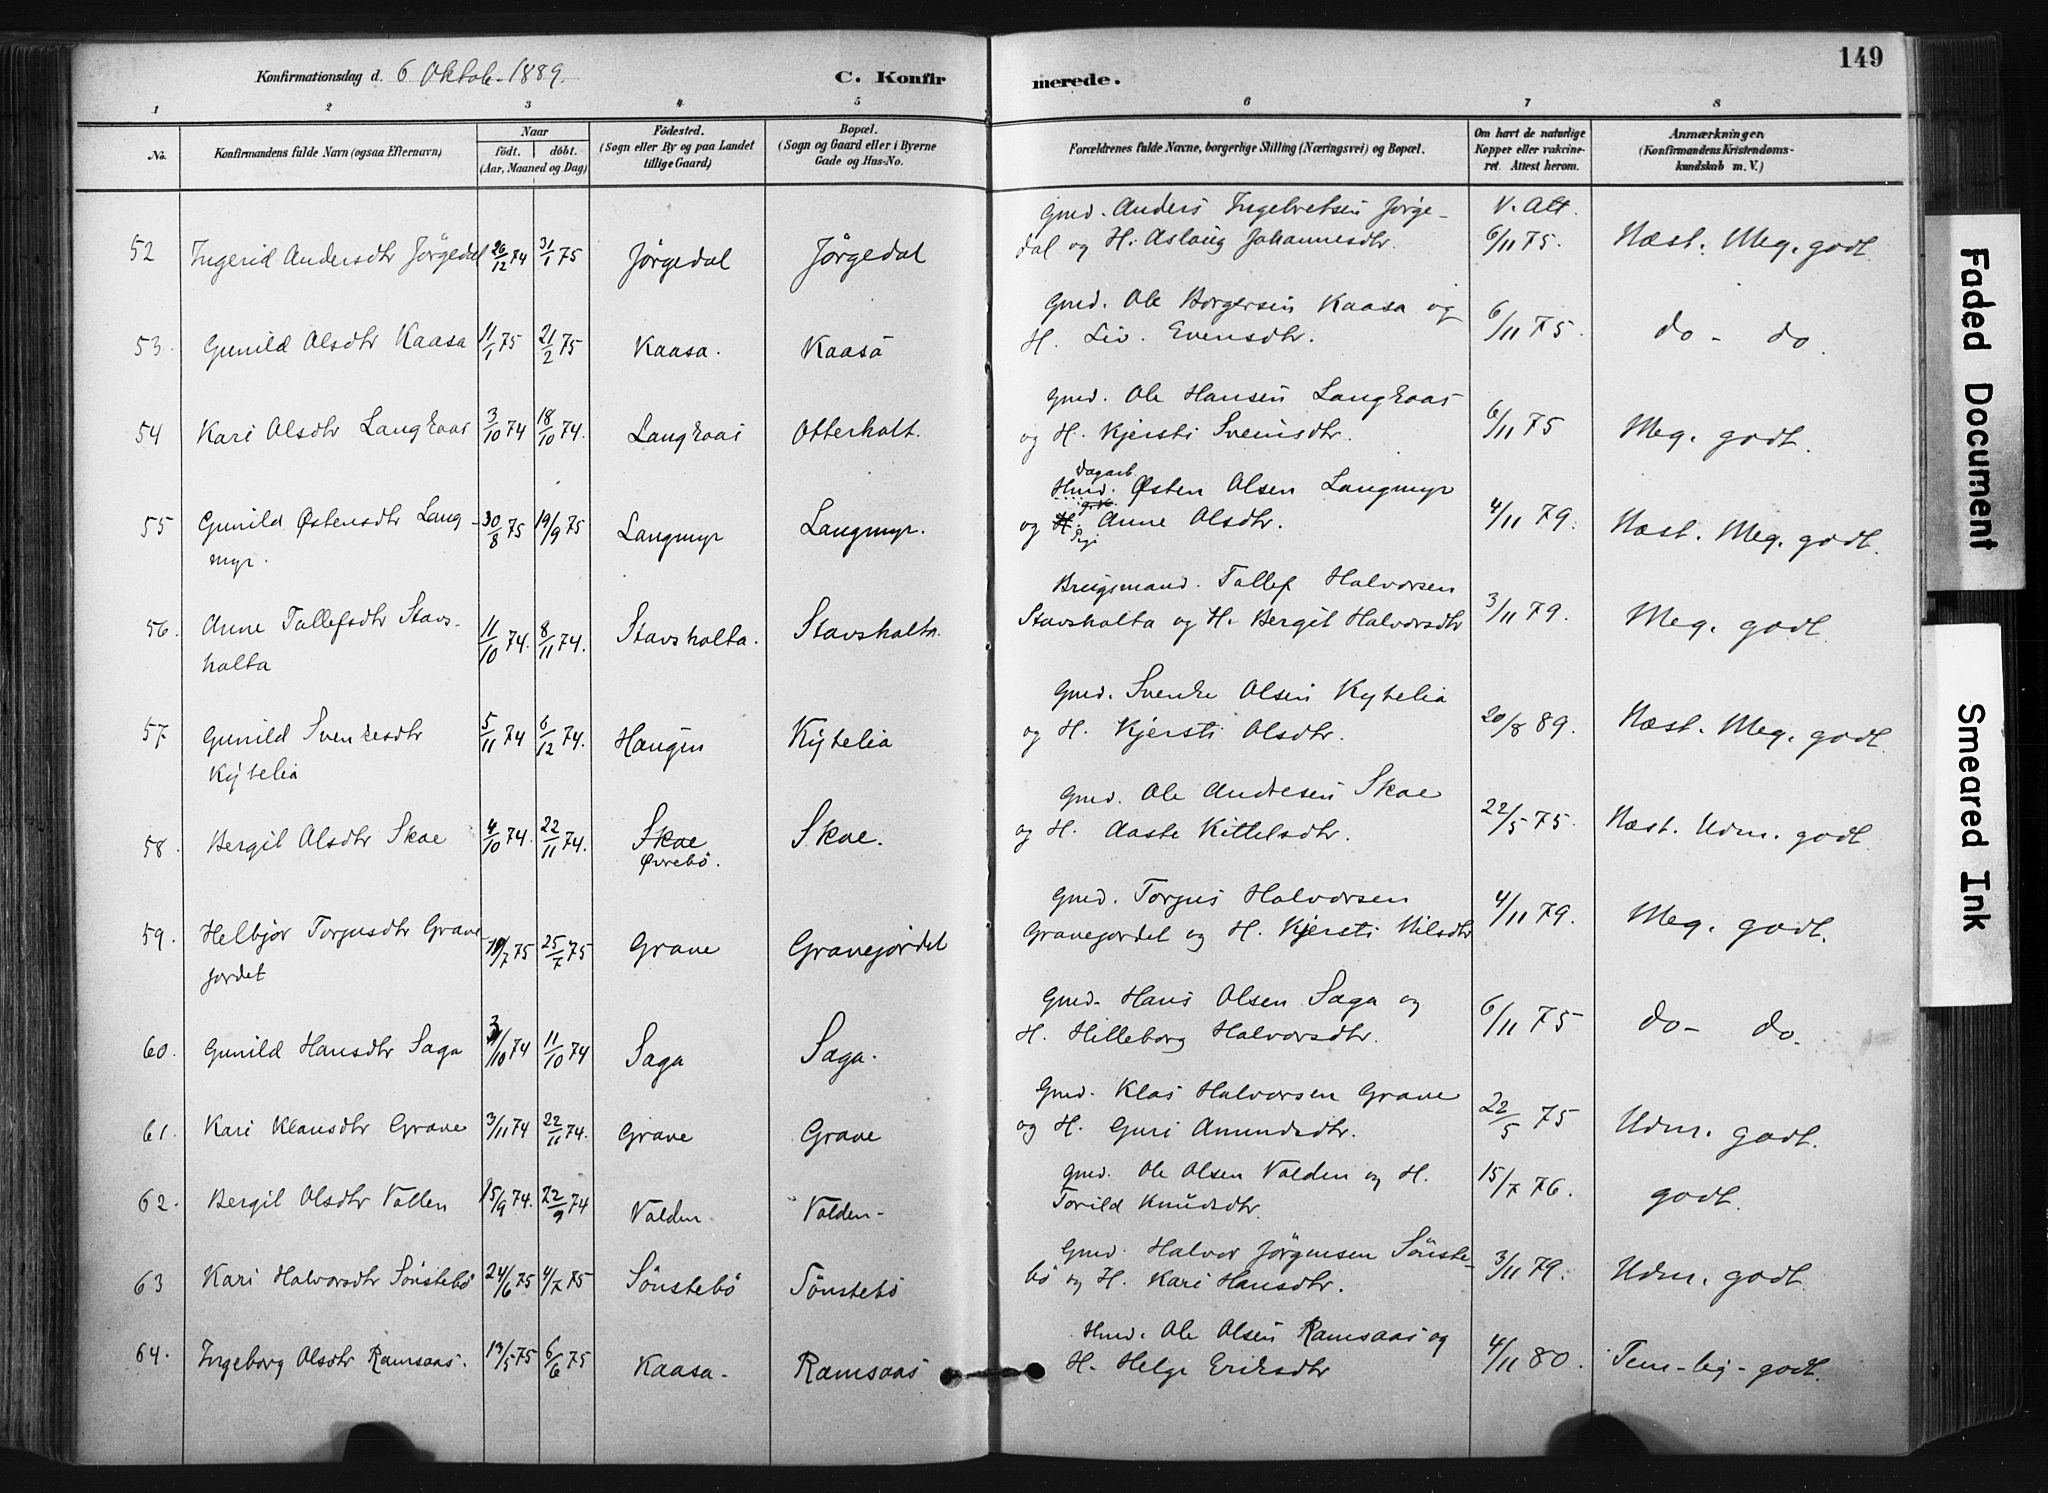 149
Konfirmationsdag d. 6 Oktob. 1889.
C. Konfirmerede.
1 2 3 4 5 6 7 8
No.
Konfirmandens fulde Navn (ogsaa Efternavn)
Naar
födt. döbt.
(Aar, Maaned og Dag)
Födested.
(Sogn eller By og paa Landet
tillige Gaard)
Bopæl.
(Sogn og Gaard eller i Byerne
Gade og Hus-No.
Forældrenes fulde Navne, borgerlige Stilling (Næringsvei) og Bopæl.
Om havt de naturlige
Kopper eller vakcine-
ret. Attest herom.
Anmærkninger.
(Konfirmandens Kristendoms-
kundskab m. V.)
52 Ingerid Andersdtr Jørgedal 26/12 74 31/1 75 Jørgedal Jørgedal Gmd. Anders Ingebretsen Jørge- V. Att.
dal og H. Aslaug Johannesdtr. 6/11 75. Næst. Meg. godt
53. Gunild Olsdtr Kaasa 11/1 75 21/2 75 Kaasa. Kaasa Gmd. Ole Borgersen Kaasa og
H. Liv. Evensdtr. 6/11 75. do - do.
54 Kari Olsdtr Langkaas 3/10 74 18/10 74. Langkaas Otterholt. Gmd. Ole Hansen Langkaas
og H. Kjersti Svensdtr. 6/11 75 Meg. godt.
55 Gunild Østensdtr Lang- 30/8 75 19/9 75 Langmyr Langmyr. Dagarb.
myr. Hmd. Østen Olsen Langmyr
og H. Anne Olsdtr. 4/11 79. Næst. Meg. godt.
Pigi
56. Anne Tollefsdtr Stavs- 11/10 74. 8/11 74. Stavsholta. Stavsholta. Brugsmand. Tollef Halvorsen
holta Stavsholta og H. Bergit Halvorsdtr 3/11 79. Meg. godt.
57 Gunild Svenkesdtr 5/11 74 6/12 74. Haugen Kytelia Gmd. Svenke Olsen Kytelia
Kytelia og H. Kjersti Olsdtr. 20/8 89. Næst. Meg. godt.
58. Bergit Olsdtr Skoe 4/10 74. 22/11 74. Skoe Skoe. Gmd. Ole Andresen Skoe
Øvrebö. og H. Aaste Kittelsdtr. 22/5 75. Næst. Udm. godt.
59. Helbjør Torjusdtr Grave- 19/7 75 25/7 75 Grave Gravejordet Gmd. Torjus Halvorsen
jordet Gravejordet og H. Kjersti Nilsdtr 4/11 79. Meg. godt.
60. Gunild Hansdtr Saga 3/10 74 11/10 74 Saga Saga. Gmd. Hans Olsen Saga og
H. Hilleborg Halvorsdtr. 6/11 75 do - do.
61. Kari Klausdtr Grave 3/11 74 22/11 74. Grave Grave Gmd. Klas Halvorsen Grave
og H. Guri Amundsdtr. 22/5 75 Udm. godt.
62. Bergit Olsdtr Vollen 15/9 74. 22/9 74 Valden Valden- Gmd. Ole Olsen Valden og H.
Torild Knudsdtr. 15/7 76. godt.
63 Kari Halvorsdtr Sönstebö 24/6 75 4/7 75 Sönstebö Sönstebö Gmd. Halvor Jørgensen Sönste-
bö og H. Kari Hansdtr. 3/11 79. Udm. godt.
64. Ingeborg Olsdtr Ramsaas. 13/5 75 6/6 75 Kaasa. Ramsaas Hmd. Ole Olsen Ramsaas og
H. Helge Eriksdtr 4/11 80. Tem-lig-godt.
Faded Document
Smeared Ink